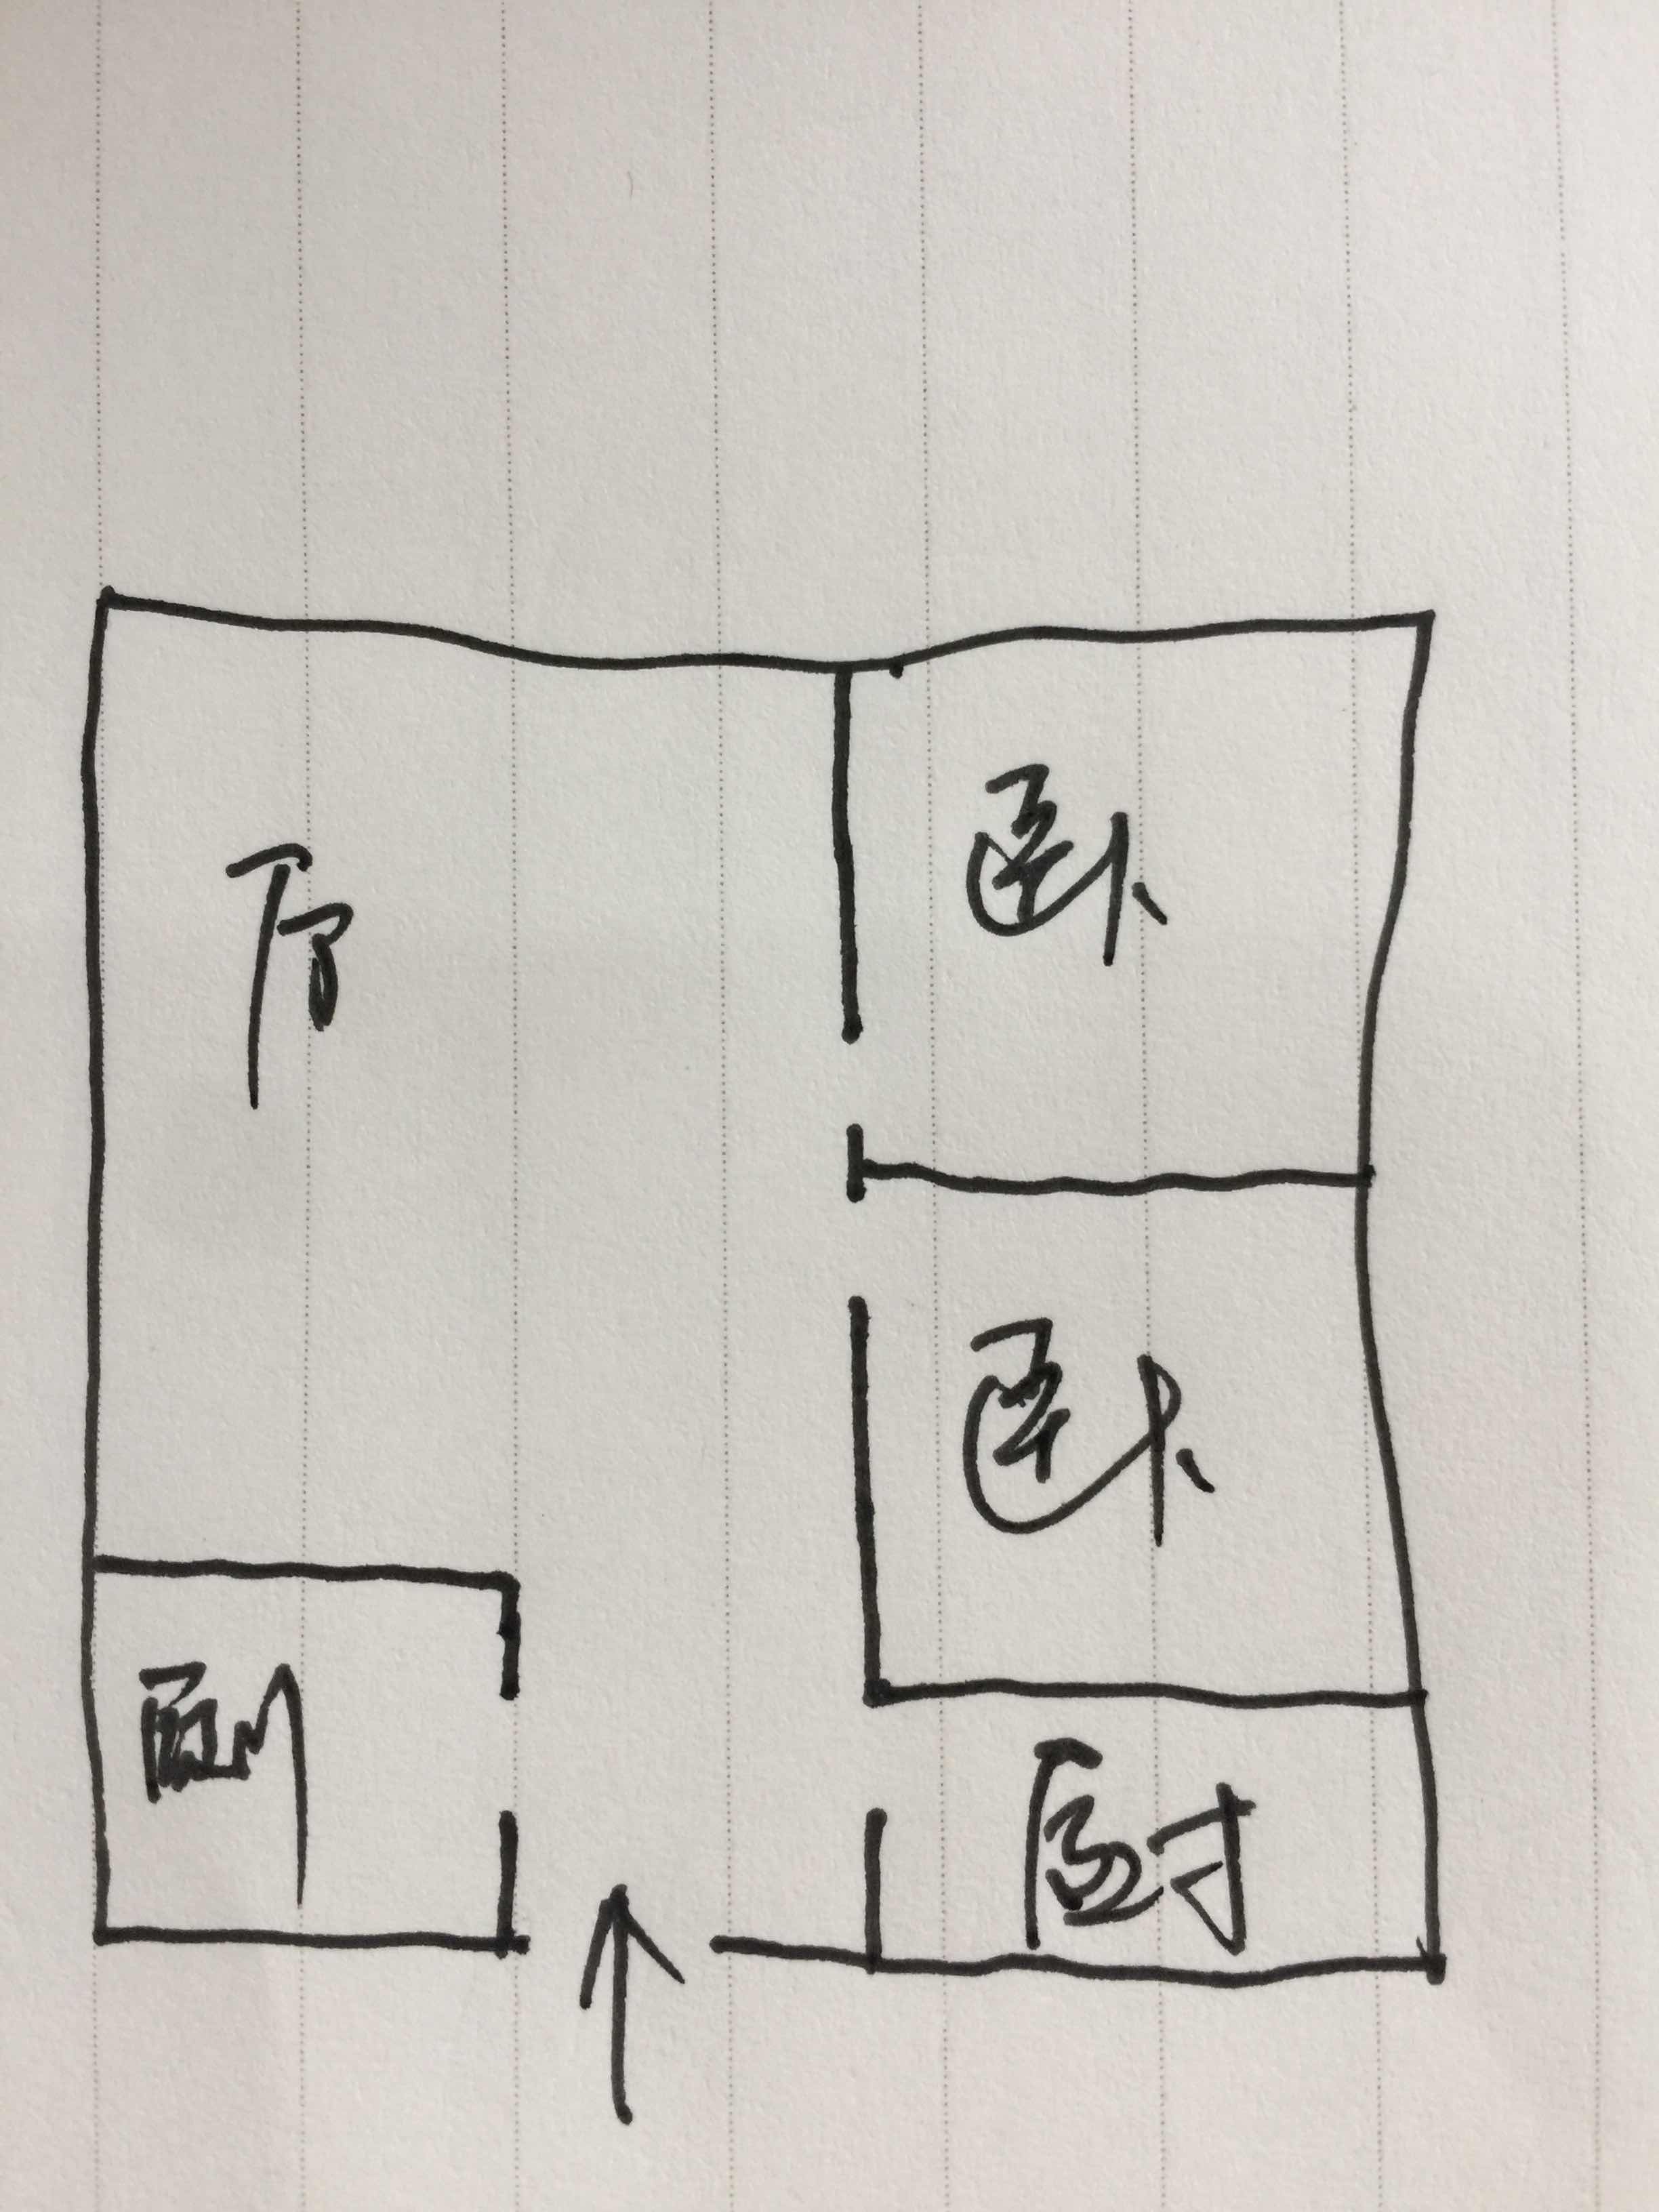 厅
卧
卧
厕
厨